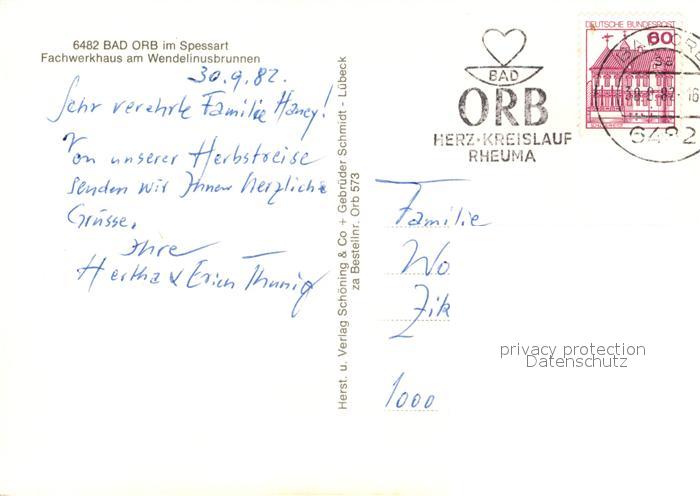 6482 BAD ORB im Spessart
Fachwerkhaus am Wendelinusbrunnen
30.9.82.
Sehr verehrte Familie Haney!
Von unserer Herbstreise
senden wir Ihnen herzliche
Grüsse.
Ihre
Hertha & Erich Thunig
Herst. u. Verlag Schöning & Co + Gebrüder Schmidt - Lübeck
za Bestellnr. Orb 573
BAD
ORB
HERZ·KREISLAUF
RHEUMA
DEUTSCHE BUNDESPOST
60
BAD ORB
30.9.82-16
6482
Familie
Wo
Zik
1000
privacy protection
Datenschutz